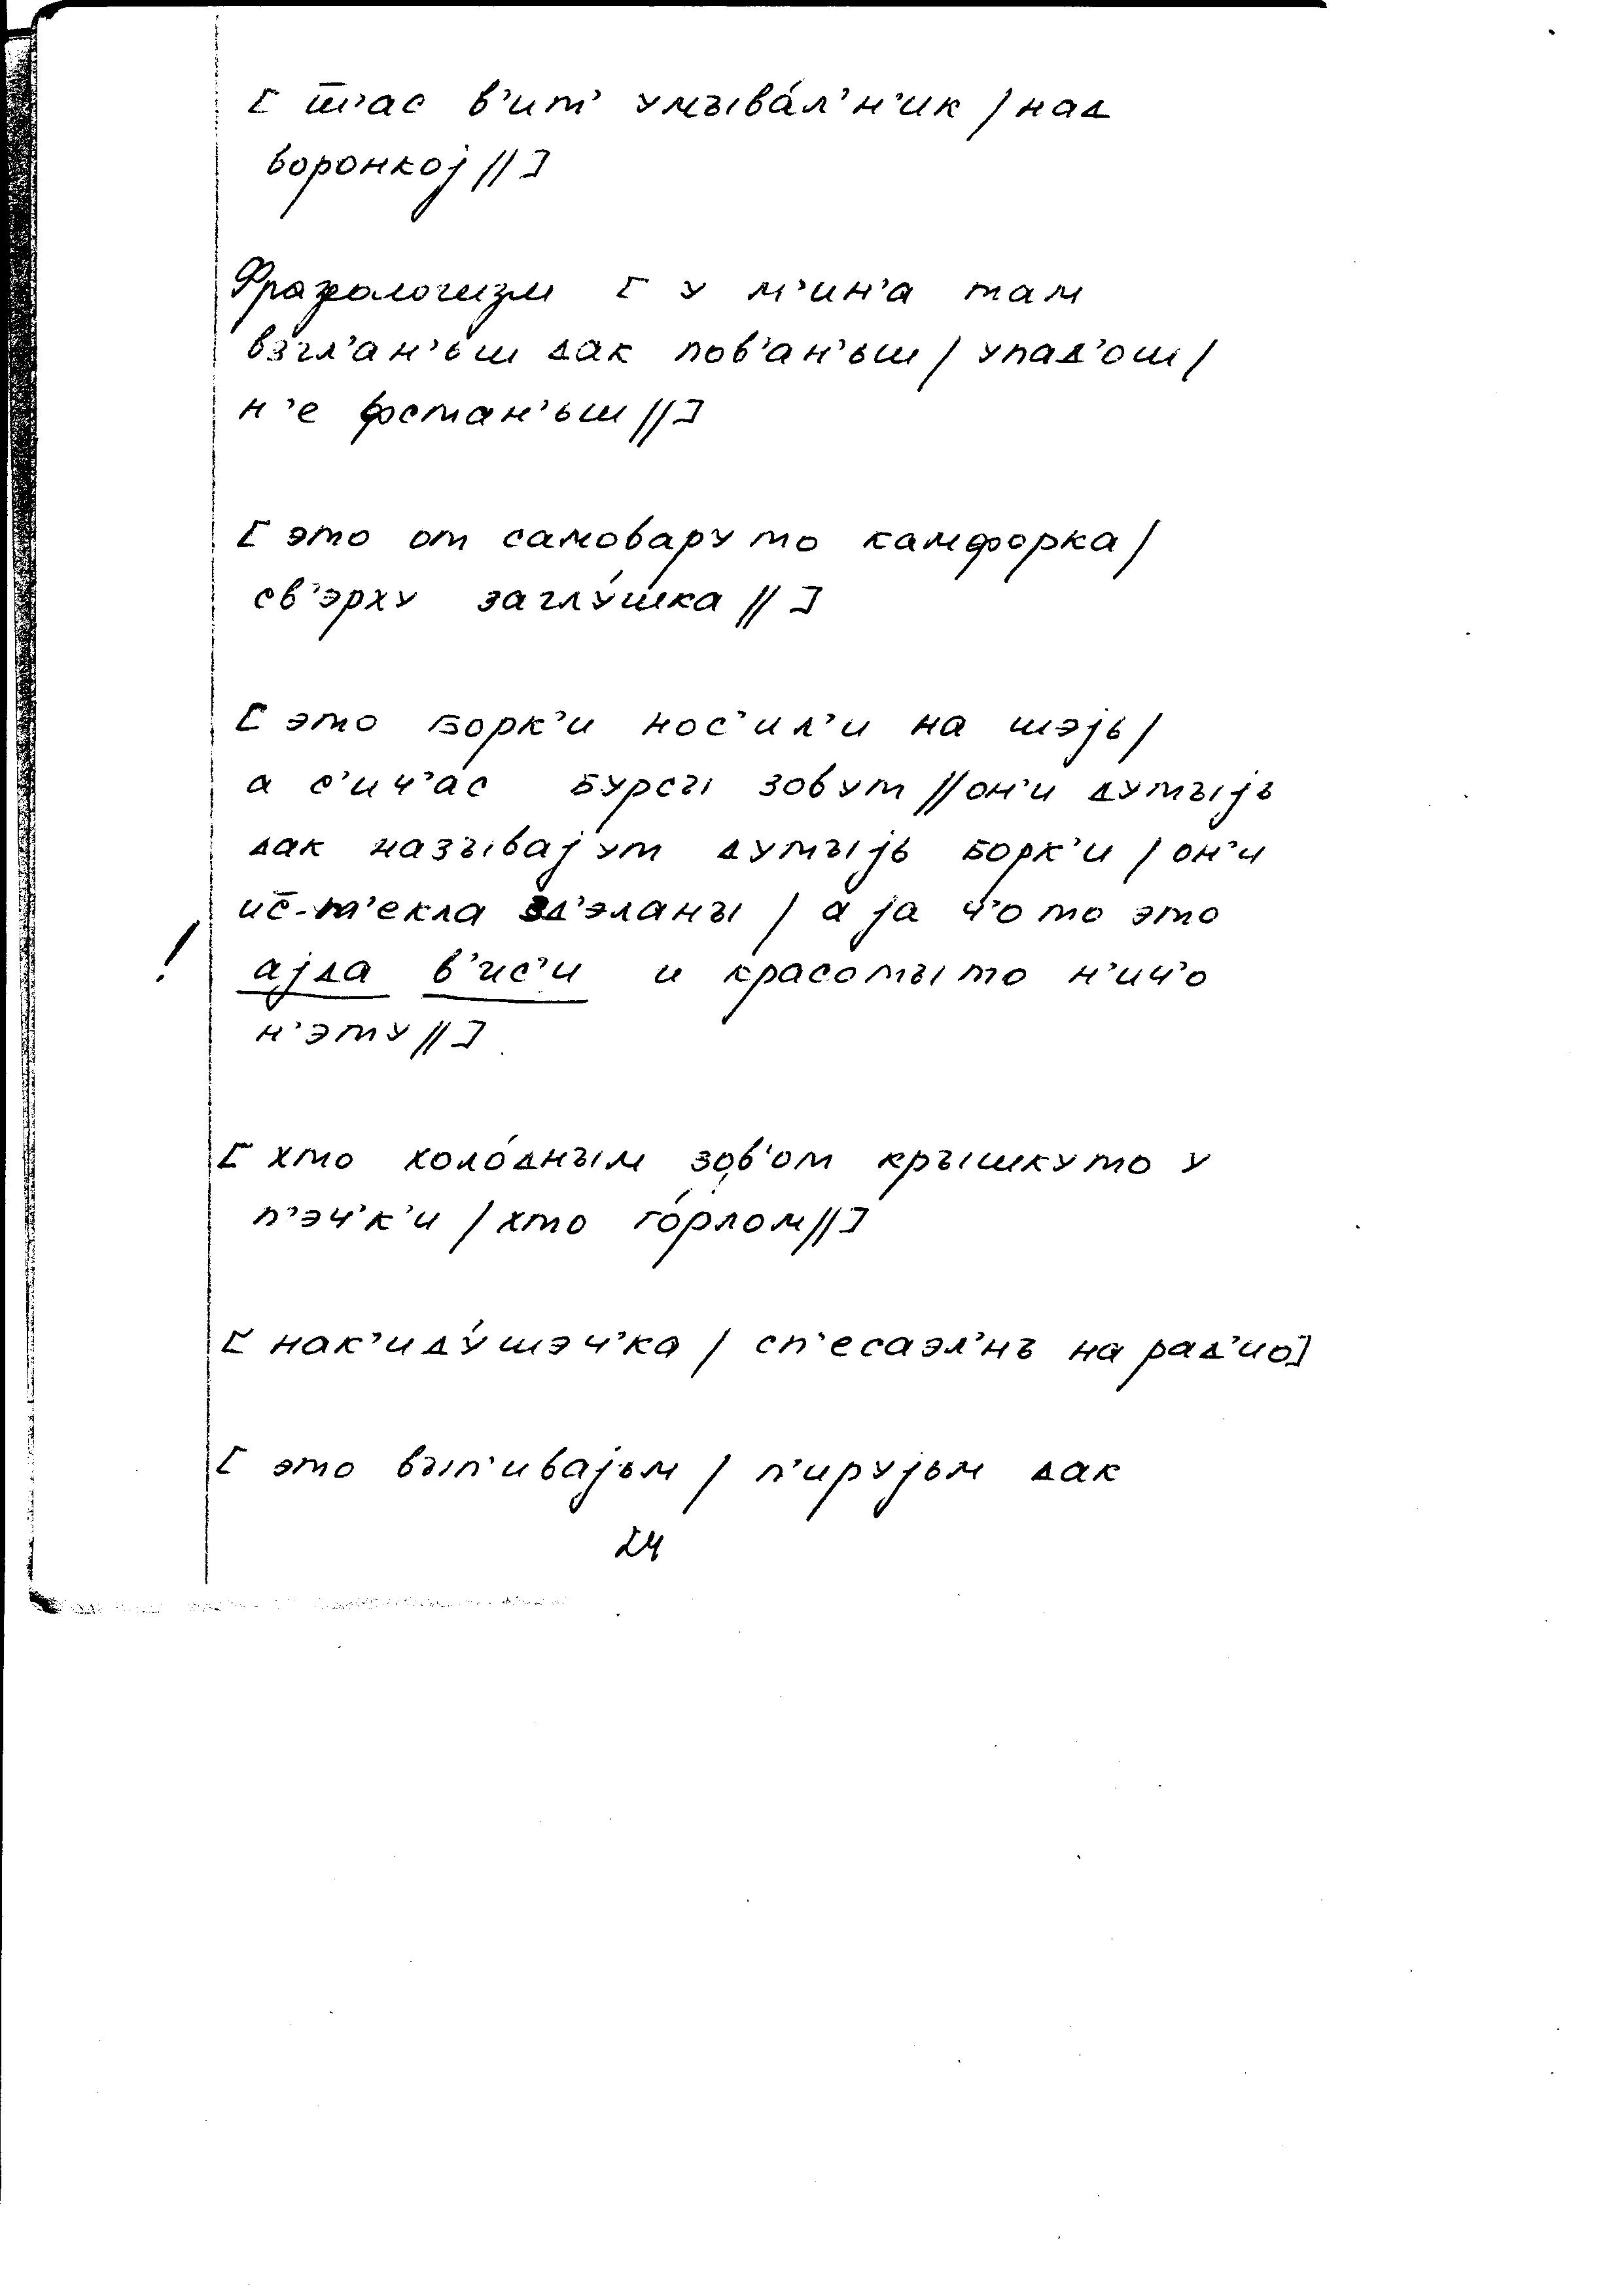 [ ш̅'ас в'ит' умыва́л'н'ик / над
воронкоj // ]
Фразеологизм [ у м'ин'а там
взгл'ан'ьш дак пов'ан'ьш / упад'ош /
н'е фстан'ьш // ]
[ это от самовару то камфорка /
св'эрху заглу́шка // ]
[ это борк'и нос'ил'и на шэjь /
а с'ич'ас бурсы зовут // он'и дутыjь
дак называjут дутыjь борк'и / он'и
ис̅-т'екла зд'эланы / а jа ч'о то это
! аjда в'ис'и и красоты то н'ич'о
н'эту // ]
[ хто холо́дным зов'от крышку то у
п'эч'к'и / хто го́рлом // ]
[ нак'иду́шэч'ка / сп'есаэл'нъ на рад'ио ]
[ это вып'иваjьм / п'ируjьм дак
24